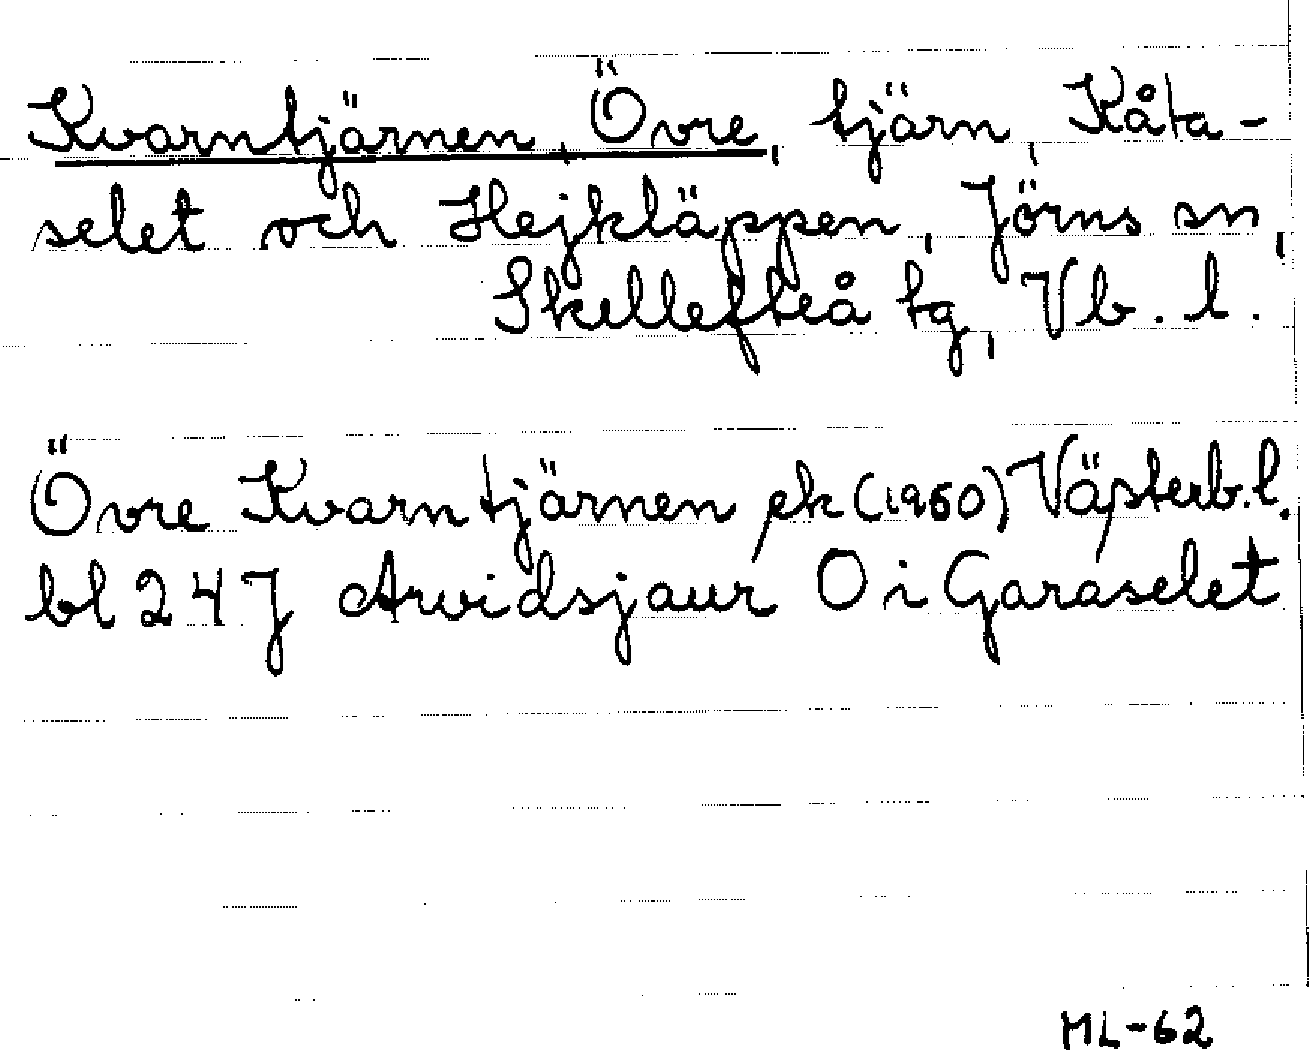 Kvarntjärnen, Övre, tjärn, Kåta-
selet och Hejkläppen, Jörns sn,
Skellefteå tg, Vb. l.
Övre Kvarntjärnen ek (1950) Västerb. l.
bl 24 J Arvidsjaur O i Garaselet
ML-62